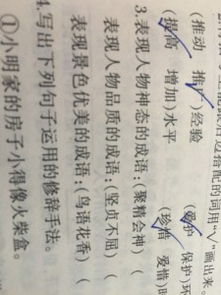 适搭配的词用“√”画出来
(推动 推广)经验 (爱护 保护)环
(提高 增加)水平 (珍惜 爱惜)时
3.表现人物神态的成语:(聚精会神) (
表现人物品质的成语:(坚贞不屈) (
表现景色优美的成语:(鸟语花香) (
4.写出下列句子运用的修辞手法。
①小明家的房子小得像火柴盒。